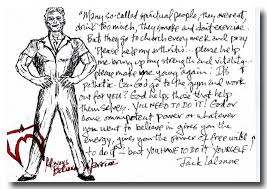 "Many so-called spiritual people, they overeat,
drink too much, they smoke and don't exercise...
But they go to church every week and pray
please help my arthritis... please help
me, bring up my strength and vitality...
please make me young again... It's
pathetic. Can God go to the gym and work
out for you? God helps those that help
themselves. YOU NEED TO DO IT! God or
some omnipotent power or whatever
you want to believe in gives you the
energy, gives you the power of free will
to do it — but YOU HAVE TO DO IT YOURSELF."
Jack Lalanne